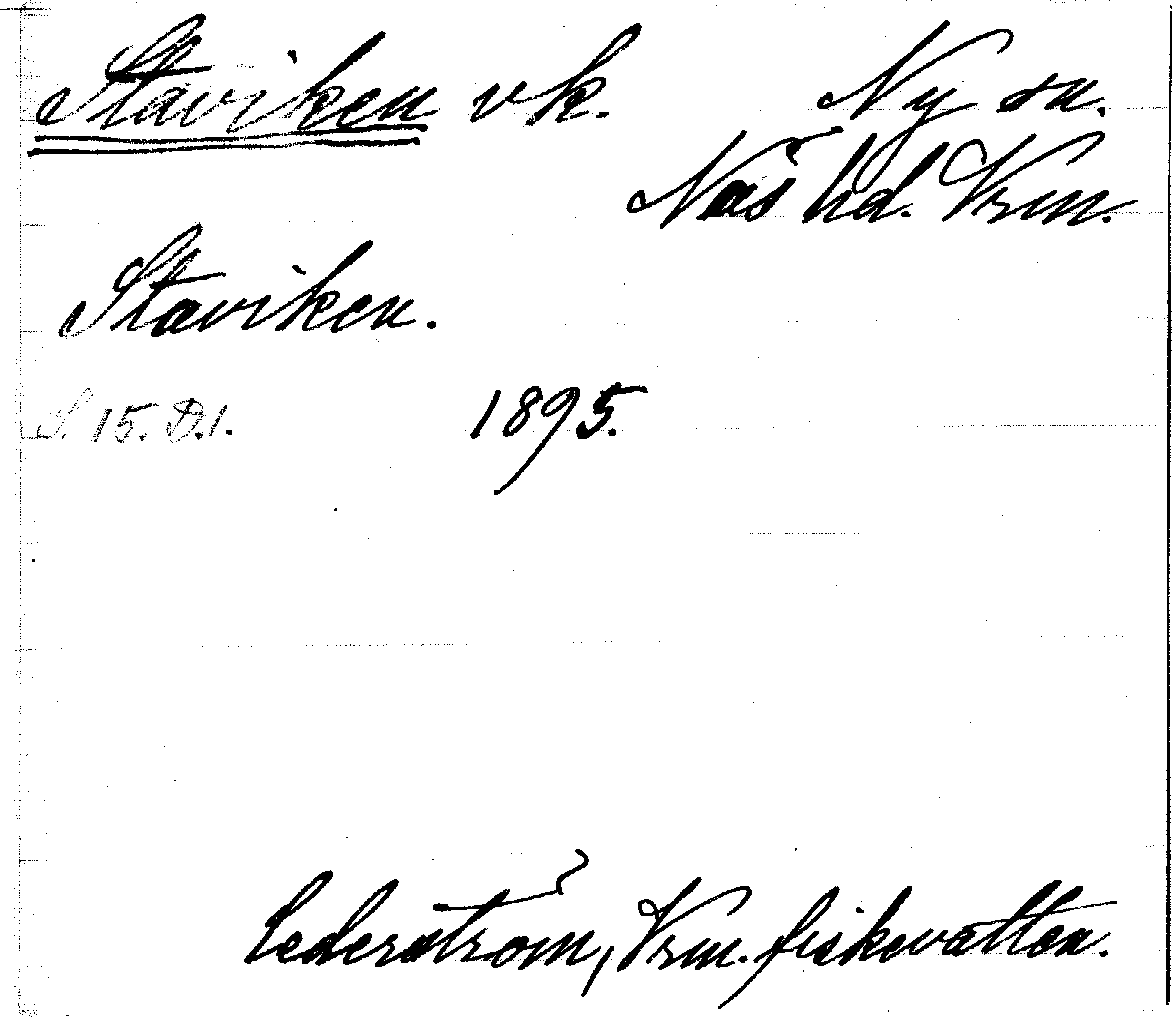 Staviken vk. Ny sn.
Näs hd. Vrm.
Staviken.
S. 15. D.1. 1895.
Cederström, Vrm. fiskevatten.